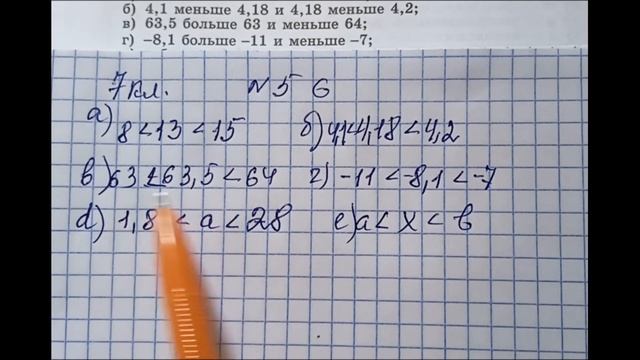 б) 4,1 меньше 4,18 и 4,18 меньше 4,2;
в) 63,5 больше 63 и меньше 64;
г) –8,1 больше –11 и меньше –7;
7 кл. N 56
а) 8 < 13 < 15 б) 4,1<4,18 < 4,2
в) 63 < 63,5 < 64 г) -11 < -8,1 < -7
d) 1,8 < а < 28 е) а < х < в